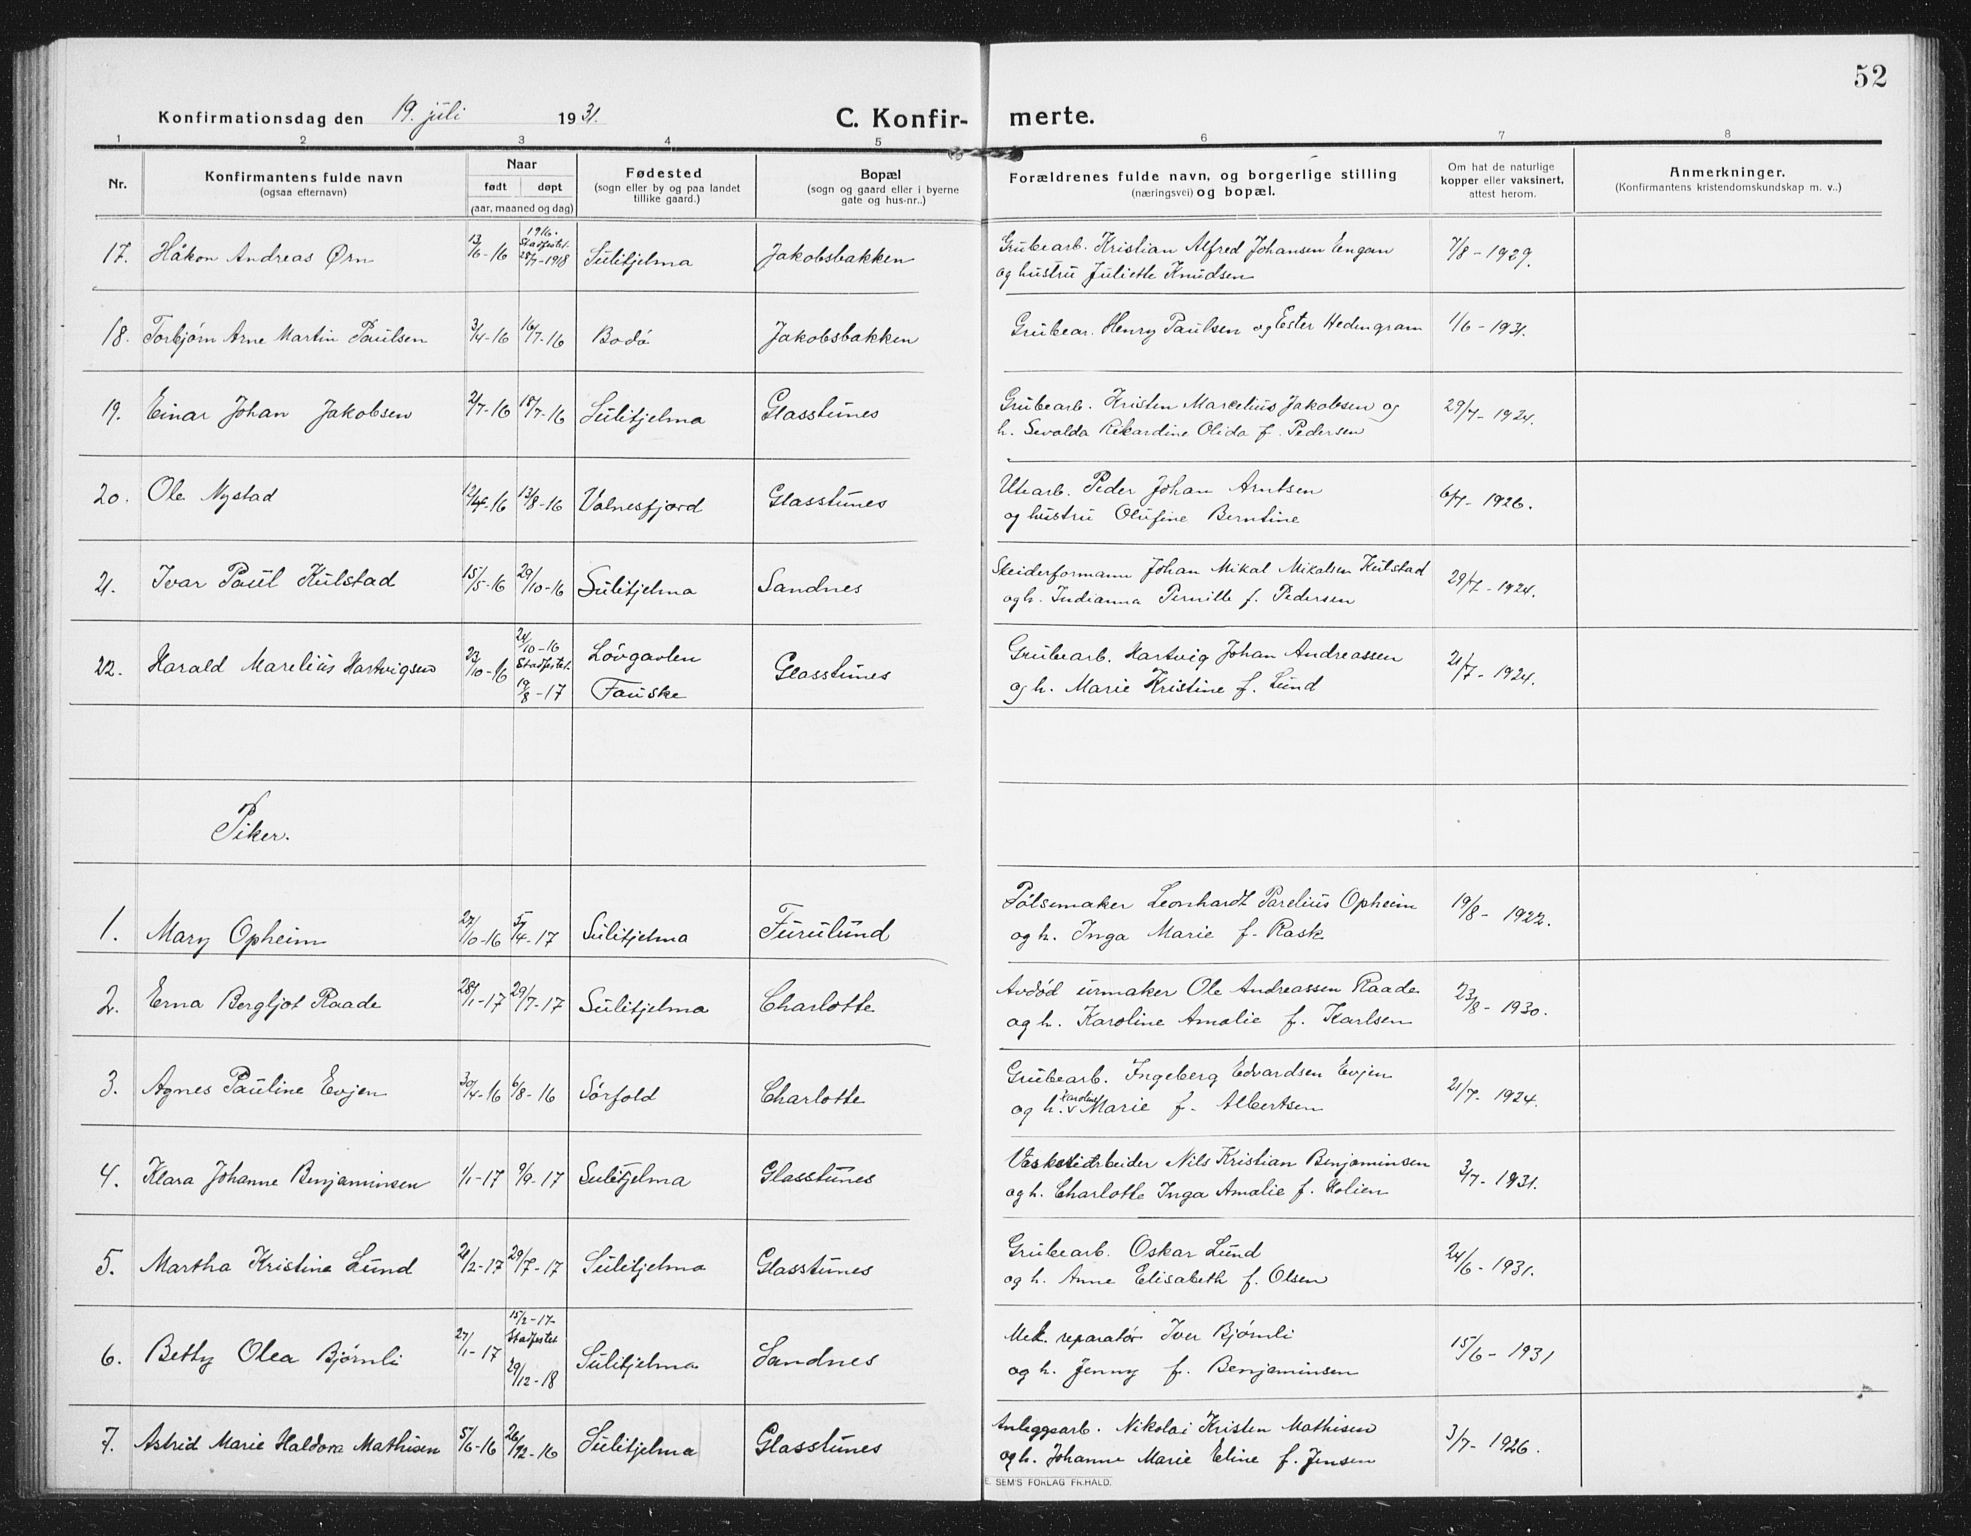 52
Konfirmationsdag den 19. juli 1931.
C. Konfir- merte.
1 2 3 4 5 6 7 8
Nr.
Konfirmantens fulde navn
(ogsaa efternavn)
Naar
født døpt
(aar, maaned og dag)
Fødested
(sogn eller by og paa landet
tillike gaard.)
Bopæl
(sogn og gaard eller i byerne
gate og hus-nr..)
Forældrenes fulde navn, og borgerlige stilling
(næringsvei) og bopæl.
Om hat de naturlige
kopper eller vaksinert,
attest herom.
Anmerkninger.
(Konfirmantens kristendomskundskap m. v..)
17. Håkon Andreas Ørn 13/6-16 1916. Stadfestet 28/7-1918 Sulitjelma Jakobsbakken Grubearb. Kristian Alfred Johansen Engan 7/8-1929.
og hustru Juliette Knudsen
18. Torbjørn Arne Martin Paulsen 3/4-16 16/7-16 Bodø Jakobsbakken Grubear. Henry Paulsen og Ester Hedengram 1/6-1931.
19. Einar Johan Jakobsen 2/7-16 18/7-16 Sulitjelma Glasstunes Grubearb. Kristen Marcelius Jakobsen og 29/7-1924.
h. Sevalda Rikardine Olida f. Pedersen
20. Ole Nystad 12/4-16 13/8-16 Valnesfjord Glasstunes Utearb. Peder Johan Arntsen 6/7-1926.
og hustru Olufine Berntine
21. Ivar Paul Kulstad 15/5-16 29/10-16 Sulitjelma Sandnes Skeiderformann Johan Mikal Mikalsen Kulstad 29/7-1924.
og h. Indianna Pernille f. Pedersen
22. Harald Marelius Hartvigsen 23/10-16 24/10-16 Stadfestet 19/8-17 Løvgavlen Fauske Glasstunes Grubearb. Hartvig Johan Andreassen 21/7-1924.
og h. Marie Kristine f. Lund
Piker.
1. Mary Opheim 27/10-16 5/4-17 Sulitjelma Furulund Pølsemaker Leonhardt Parelius Opheim 19/8-1922.
og h. Inga Marie f. Rask
2. Erna Bergljot Raade 28/1-17 29/7-17 Sulitjelma Charlotte Avdød urmaker Ole Andreassen Raade 23/8-1930.
og h. Karoline Amalie f. Karlsen
3. Agnes Pauline Evjen 30/4-16 6/8-16 Sørfold Charlotte Grubearb. Ingeberg Edvardsen Evjen 21/7-1924.
og h. Karoline Marie f. Albertsen
4. Klara Johanne Benjaminsen 1/1-17 9/9-17 Sulitjelma Glasstunes Vaskeriarbeider Nils Kristian Benjaminsen 3/7-1931.
og h. Charlotte Inga Amalie f. Holien
5. Martha Kristine Lund 21/2-17 29/7-17 Sulitjelma Glasstunes Grubearb. Oskar Lund 24/6-1931.
og h. Anne Elisabeth f. Olsen
6. Betty Olea Bjørnli 27/1-17 15/2-17- Stadfestet 29/12-18 Sulitjelma Sandnes Mek. reparatør Iver Bjørnli 15/6-1931
og h. Jenny f. Benjaminsen
7. Astrid Marie Haldora Mathisen 5/6-16 26/12-16 Sulitjelma Glasstunes Anleggsarb. Nikolai Kristen Mathisen 3/7-1926.
og h. Johanne Marie Eline f. Jensen
E. SEM'S FORLAG FR.HALD.